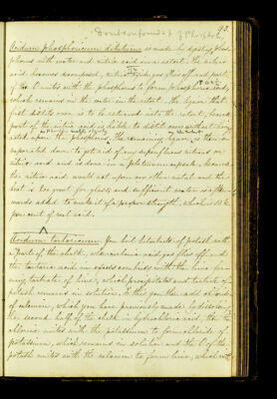 93.
Acidum phosphoricum dilutum is made by distilling phos-
phorus with water and nitric acid in a retort. The nitric
acid becomes decomposed, nitric oxide gas flies off and part
of the O unites with the phosphorus to form phosphoric acid,
which remains in the water in the retort. The liquor that
first distils over is to be returned into the retort, because
part of the nitric acid is liable to distil over without being
acted upon by the phosphorus, the remaining liquor is then
evaporated down to get rid of any superfluous water or
nitric acid and is done in a platinum capsule, because
the nitric acid would act upon any other metal and the
heat is too great for glass, and sufficient water is after-
wards added to make it of a proper strength, which is 10
per cent of real acid.
Acidum tartaricum. You boil bitartrate of potash with
a part of the chalk, when carbonic acid gas flies off and
the tartaric acid in excess combines with the lime form-
ing tartrate of lime, which precipitates and tartrate of
potash remains in solution. To this you then add chloride
of calcium, which you have previously made by dissolving
the second half of the chalk in hydrochloric acid, the
chlorine unites with the potassium to form chloride of
potassium, which remains in solution and the O of the
potash unites with the calcium to form lime, which